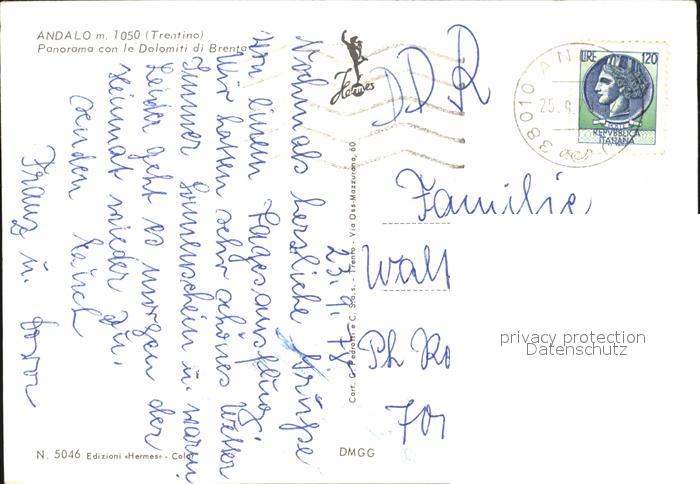 ANDALO m. 1050 (Trentino)
Panorama con le Dolomiti di Brenta
Hermes
DDR
LIRE 120
REPVBBLICA
ITALIANA
38010 AN
25.9.
23.9.78
Nochmals herzliche Grüße
von einem Tagesausflug.
Wir hatten sehr schönes Wetter
Immer Sonnenschein u. warm
Leider geht es morgen der
Heimat wieder zu.
senden Euch
Franz u.
Familie
Wall
Ph Ko
701
privacy protection
Datenschutz
Cart. G. Pedrotti e C. S.a.s. - Trento - Via Oss-Mazzurana, 60
N. 5046 Edizioni «Hermes» - Color
DMGG